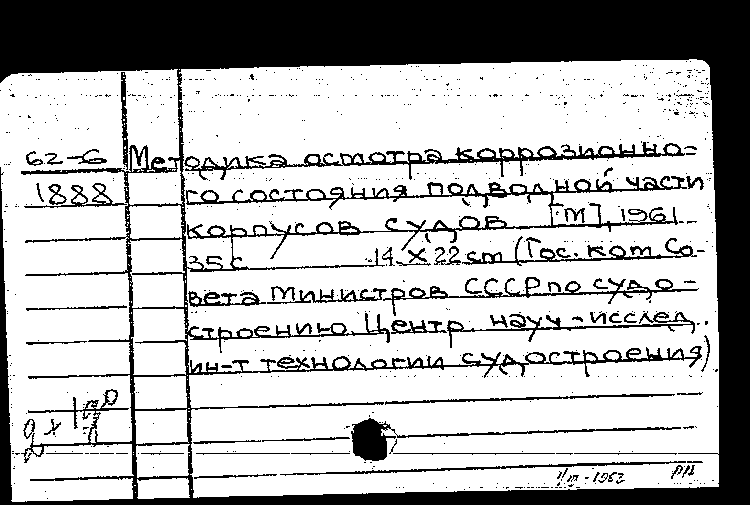 62-6 Методика осмотра коррозионно-
1888 го состояния подводной части
корпусов судов [М], 1961
35с 14 X 22 cm (Гос. ком. Со-
вета Министров СССР по судо-
строению. Центр. науч-исслед.
ин-т технологии судостроения)
2 x
1/III-1962